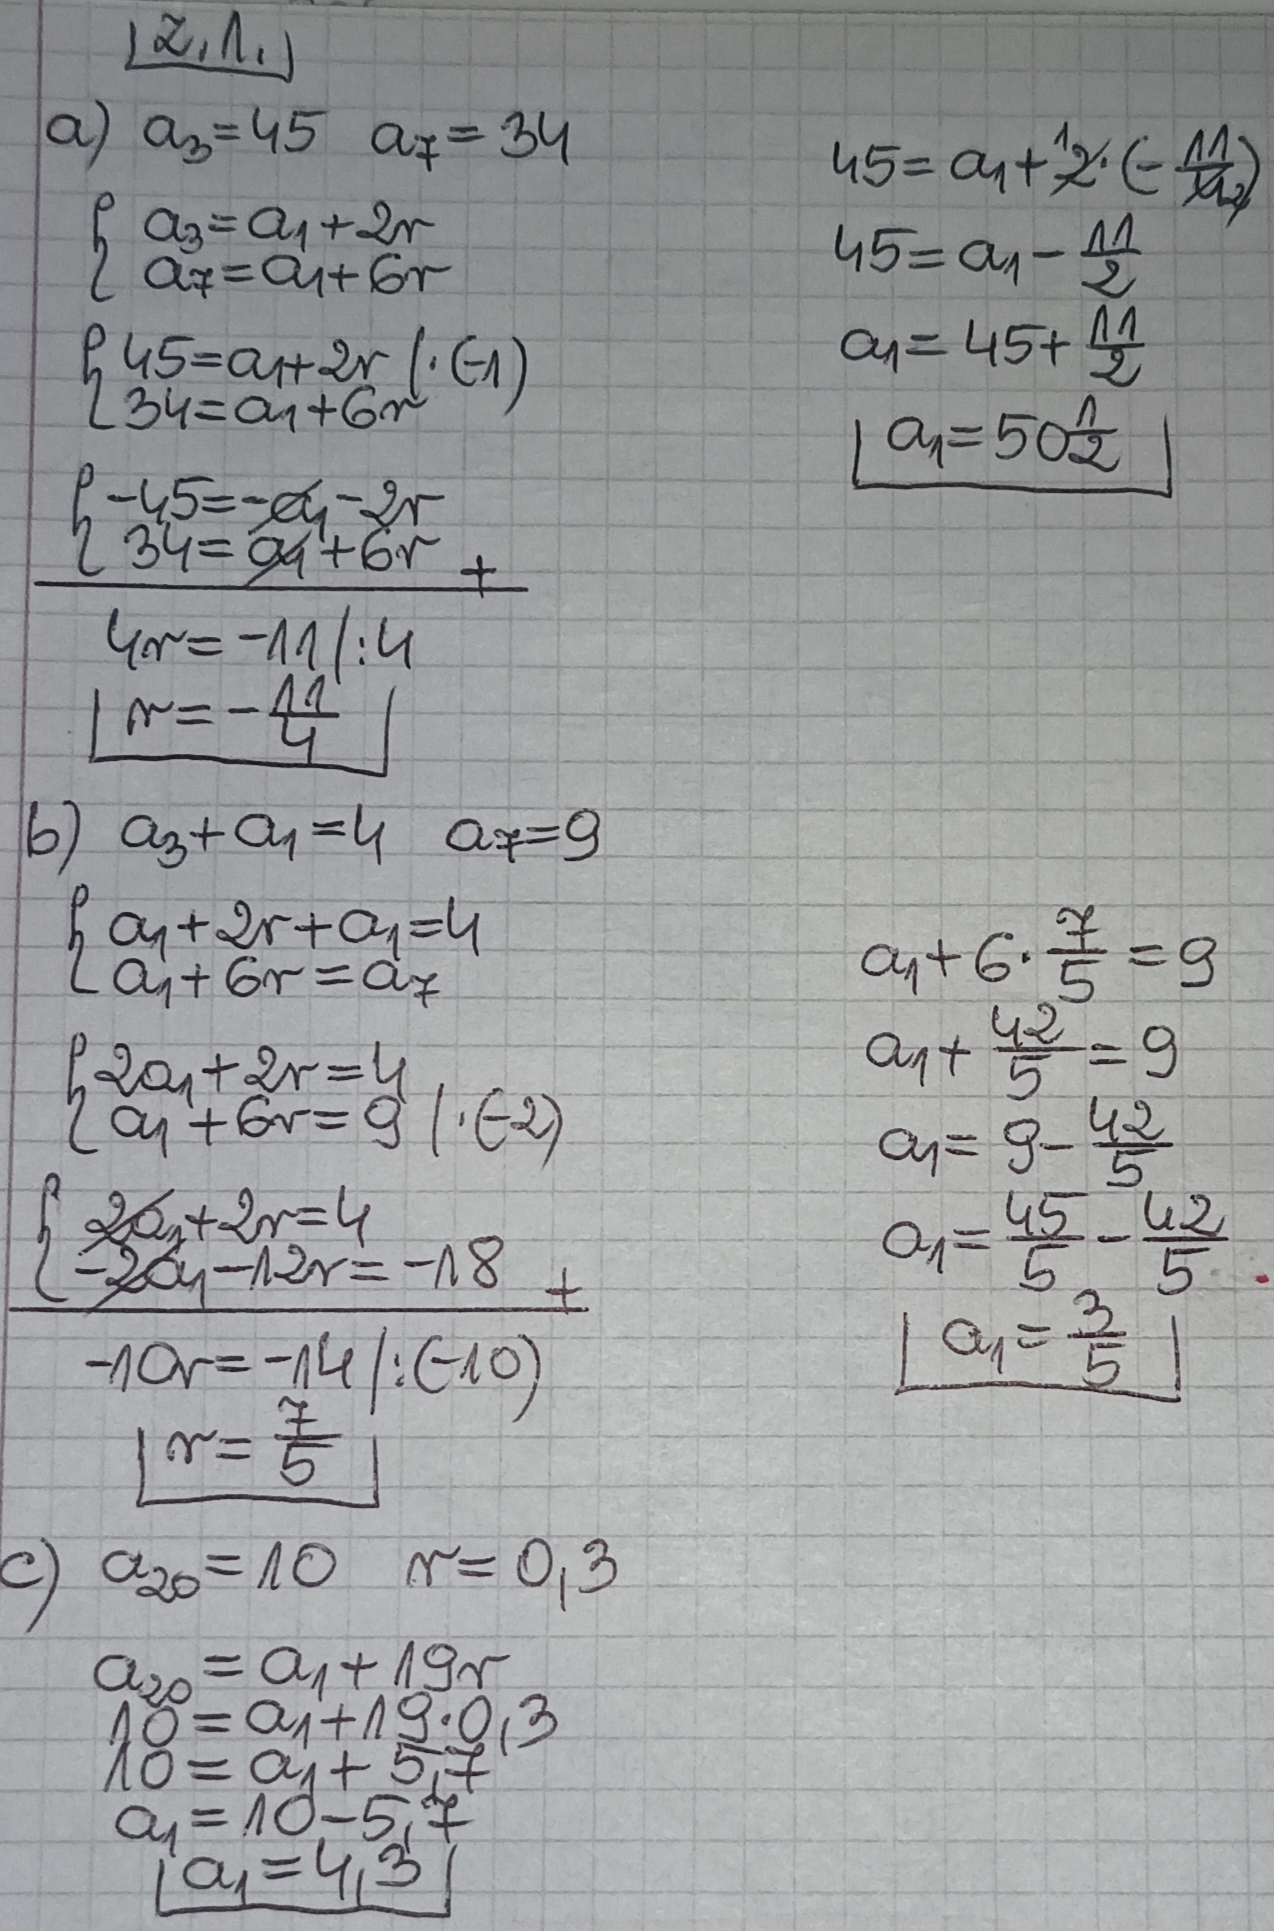 z.1.
a) a₃=45 a₇=34
{ a₃=a₁+2r
a₇=a₁+6r
{ 45=a₁+2r /·(-1)
34=a₁+6r
{ -45=-a₁-2r
34=a₁+6r +
4r=-11 /:4
r=-11/4
45=a₁+2·(-11/4)
45=a₁-11/2
a₁=45+11/2
a₁=50 1/2
b) a₃+a₁=4 a₇=9
{ a₁+2r+a₁=4
a₁+6r=a₇
{ 2a₁+2r=4
a₁+6r=9 /·(-2)
{ 2a₁+2r=4
-2a₁-12r=-18 +
-10r=-14 /:(-10)
r=7/5
a₁+6·7/5=9
a₁+42/5=9
a₁=9-42/5
a₁=45/5-42/5
a₁=3/5
c) a₂₀=10 r=0,3
a₂₀=a₁+19r
10=a₁+19·0,3
10=a₁+5,7
a₁=10-5,7
a₁=4,3